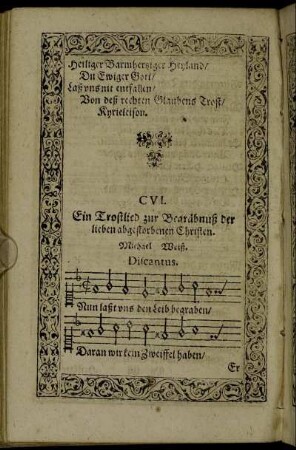 Heiliger Barmhertziger Heyland/
Du Ewiger Gott/
Laß vns nit entfallen/
Von deß rechten Glaubens Trost/
Kyrieleison.
CVI.
Ein Trostlied zur Begräbnuß der
lieben abgestorbenen Christen.
Michael Weiß.
Discantus.
Nun laßt vns den Leib begraben/
Daran wir kein Zweiffel haben/
Er